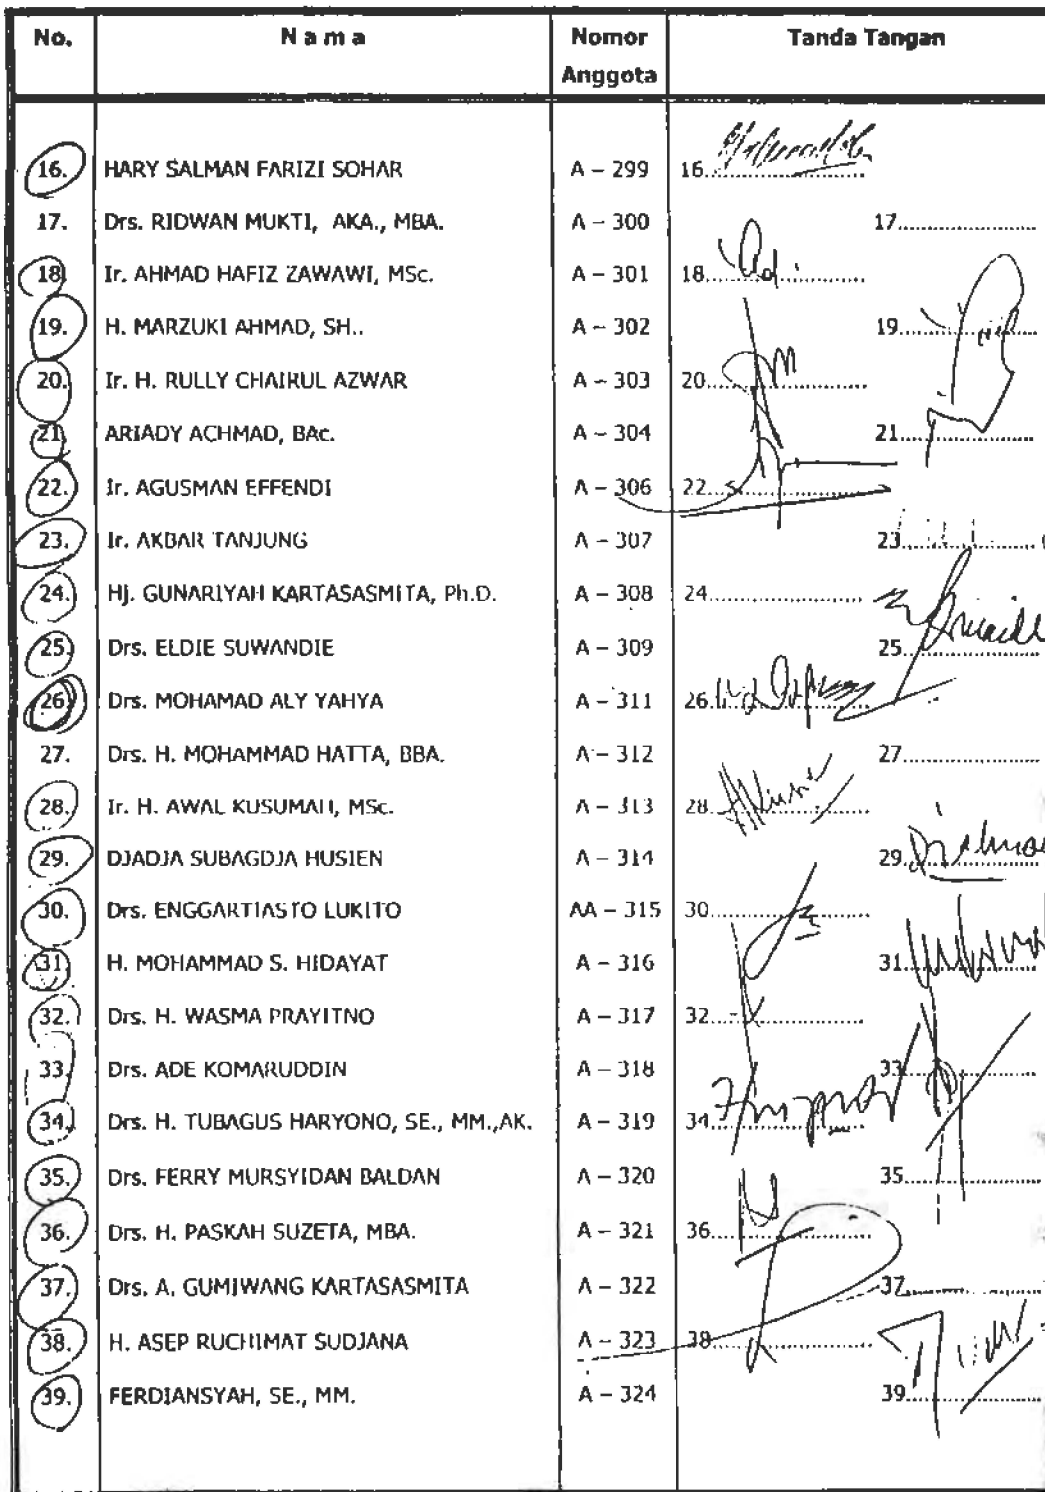 No. N a m a Nomor Anggota Tanda Tangan
16. HARY SALMAN FARIZI SOHAR A – 299 16...................
17. Drs. RIDWAN MUKTI, AKA., MBA. A – 300 17...................
18. Ir. AHMAD HAFIZ ZAWAWI, MSc. A – 301 18...................
19. H. MARZUKI AHMAD, SH.. A – 302 19...................
20. Ir. H. RULLY CHAIRUL AZWAR A – 303 20...................
21. ARIADY ACHMAD, BAc. A – 304 21...................
22. Ir. AGUSMAN EFFENDI A – 306 22...................
23. Ir. AKBAR TANJUNG A – 307 23...................
24. Hj. GUNARIYAH KARTASASMITA, Ph.D. A – 308 24...................
25. Drs. ELDIE SUWANDIE A – 309 25...................
26. Drs. MOHAMAD ALY YAHYA A – 311 26...................
27. Drs. H. MOHAMMAD HATTA, BBA. A – 312 27...................
28. Ir. H. AWAL KUSUMAH, MSc. A – 313 28...................
29. DJADJA SUBAGDJA HUSIEN A – 314 29...................
30. Drs. ENGGARTIASTO LUKITO AA – 315 30...................
31. H. MOHAMMAD S. HIDAYAT A – 316 31...................
32. Drs. H. WASMA PRAYITNO A – 317 32...................
33. Drs. ADE KOMARUDDIN A – 318 33...................
34. Drs. H. TUBAGUS HARYONO, SE., MM.,AK. A – 319 34...................
35. Drs. FERRY MURSYIDAN BALDAN A – 320 35...................
36. Drs. H. PASKAH SUZETA, MBA. A – 321 36...................
37. Drs. A. GUMIWANG KARTASASMITA A – 322 37...................
38. H. ASEP RUCHIMAT SUDJANA A – 323 38...................
39. FERDIANSYAH, SE., MM. A – 324 39...................